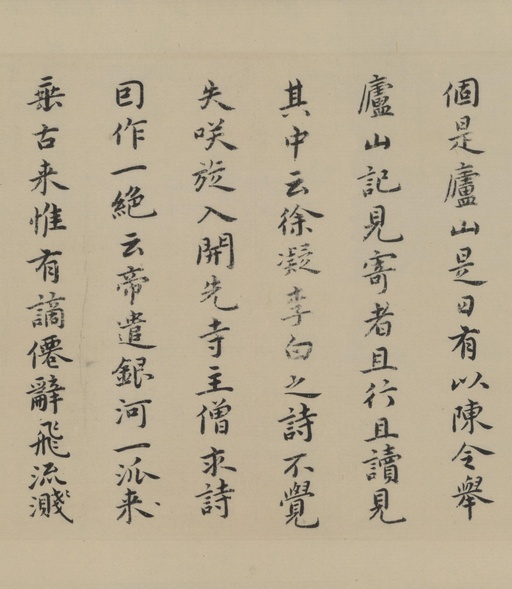 個是廬山是日有以陳令舉
廬山記見寄者且行且讀見
其中云徐凝李白之詩不覺
失咲旋入開先寺主僧求詩
囙作一絶云帝遣銀河一派来
垂古来惟有謫僊辭飛流濺